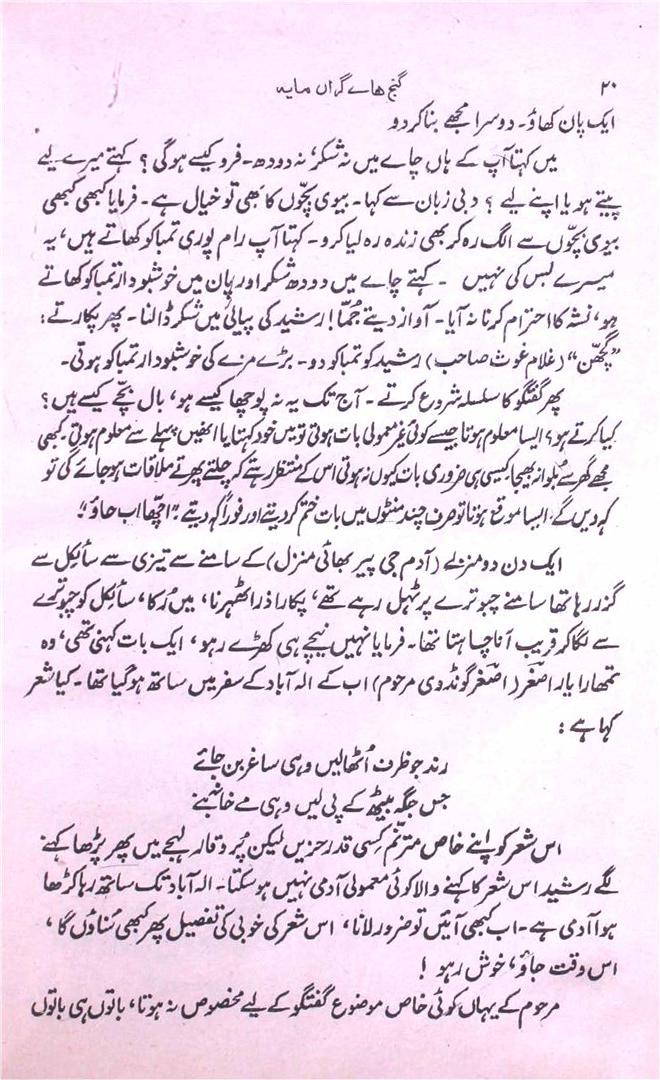 ۲۰
گنج ھاے گراں مایہ
ایک پان کھاؤ۔ دوسرا مجھے بنا کر دو
میں کہتا آپ کے ہاں چاے میں نہ شکر، نہ دودھ۔ فرو کیسے ہوگی؟ کہتے میرے لیے
پیتے ہو یا اپنے لیے؟ دبی زبان سے کہا۔ بیوی بچّوں کا بھی تو خیال ہے۔ فرمایا کبھی کبھی
بیوی بچّوں سے الگ رہ کر بھی زندہ رہ لیا کرو۔ کہتا آپ رام پوری تمباکو کھاتے ہیں، یہ
میرے بس کی نہیں ۔ کہتے چاے میں دودھ شکر اور پان میں خوشبودار تمباکو کھاتے
ہو، نشہ کا احترام کرنا نہ آیا۔ آواز دیتے جُمّا! رشید کی پیالی میں شکر ڈالنا۔ پھر پکارتے:
”گچھّن“ (غلام غوث صاحب) رشید کو تمباکو دو۔ بڑے مزے کی خوشبودار تمباکو ہوتی۔
پھر گفتگو کا سلسلہ شروع کرتے۔ آج تک یہ نہ پوچھا کیسے ہو، بال بچّے کیسے ہیں؟
کیا کرتے ہو؟ ایسا معلوم ہوتا جیسے کوئی غیر معمولی بات ہوتی تو میں خود کہتا یا انھیں پہلے سے معلوم ہوتی۔ کبھی
مجھے گھر سے بلوا نہ بھیجا، کیسی ہی ضروری بات کیوں نہ ہوتی اس کے منتظر رہتے کہ چلتے پھرتے ملاقات ہو جائے گی تو
کہہ دیں گے۔ ایسا موقع ہوتا تو صرف چند منٹوں میں بات ختم کر دیتے اور فوراً کہہ دیتے: ”اچھّا اب جاؤ“!
ایک دن دو منزلے (آدم جی پیر بھائی منزل) کے سامنے سے تیزی سے سائکل سے
گزر رہا تھا سامنے چبوترے پر ٹہل رہے تھے، پکارا ذرا ٹھہرنا، میں رُکا، سائکل کو چبوترے
سے لگا کر قریب آنا چاہتا تھا۔ فرمایا نہیں نیچے ہی کھڑے رہو، ایک بات کہنی تھی، وہ
تمھارا یار اصغرؔ (اصغرؔ گونڈوی مرحوم) اب کے الہ آباد کے سفر میں ساتھ ہو گیا تھا۔ کیا شعر
کہا ہے:
رند جو ظرف اُٹھا لیں وہی ساغر بن جائے
جس جگہ بیٹھ کے پی لیں وہی مے خانہ بنے
اس شعر کو اپنے خاص مترنّم کسی قدر حزیں لیکن پُر وقار لہجے میں پھر پڑھا کہنے
لگے رشید اس شعر کا کہنے والا کوئی معمولی آدمی نہیں ہو سکتا۔ الہ آباد تک ساتھ رہا کڑھا
ہوا آدمی ہے۔ اب کبھی آئیں تو ضرور لانا، اس شعر کی خوبی کی تفصیل پھر کبھی سُناؤں گا،
اس وقت جاؤ، خوش رہو!
مرحوم کے یہاں کوئی خاص موضوع گفتگو کے لیے مخصوص نہ ہوتا، باتوں ہی باتوں